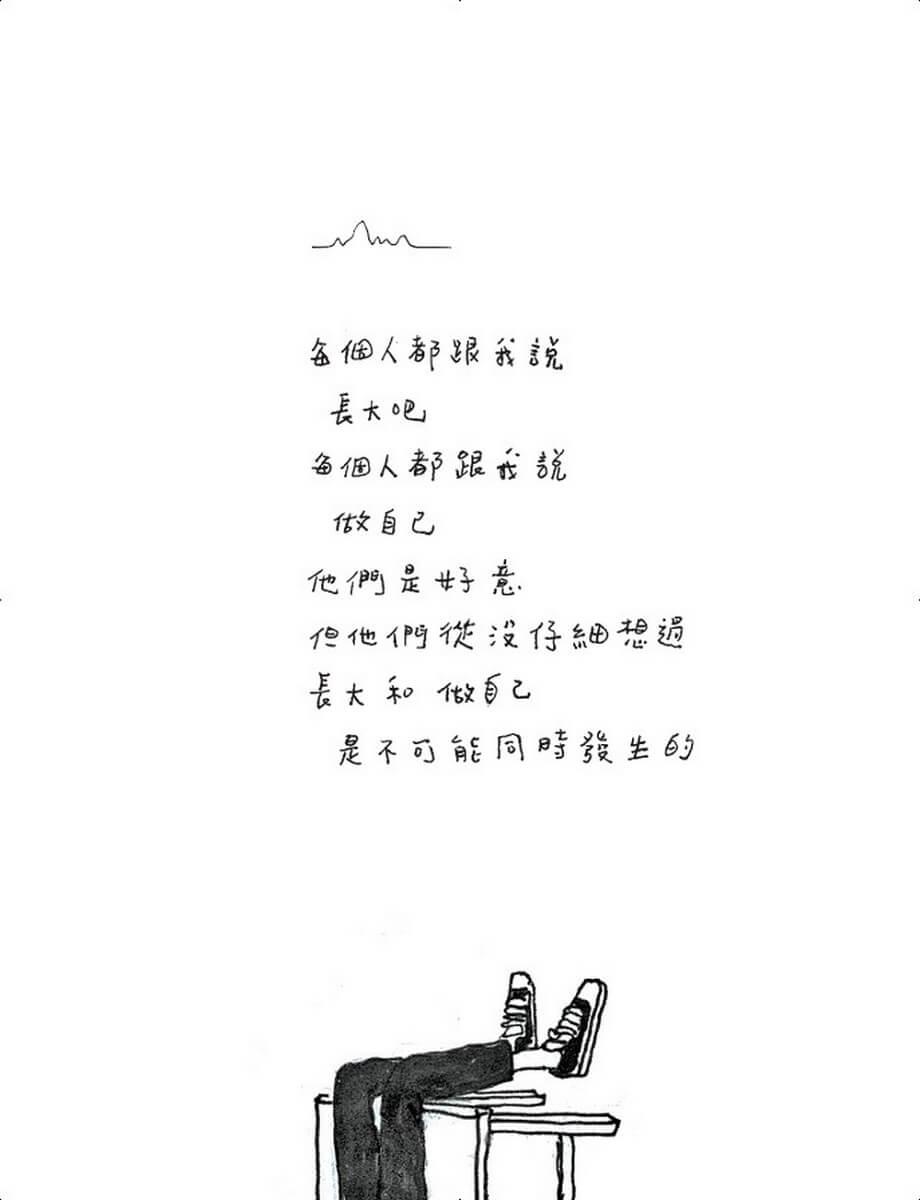 每個人都跟我說
長大吧
每個人都跟我說
做自己
他們是好意
但他們從沒仔細想過
長大和做自己
是不可能同時發生的